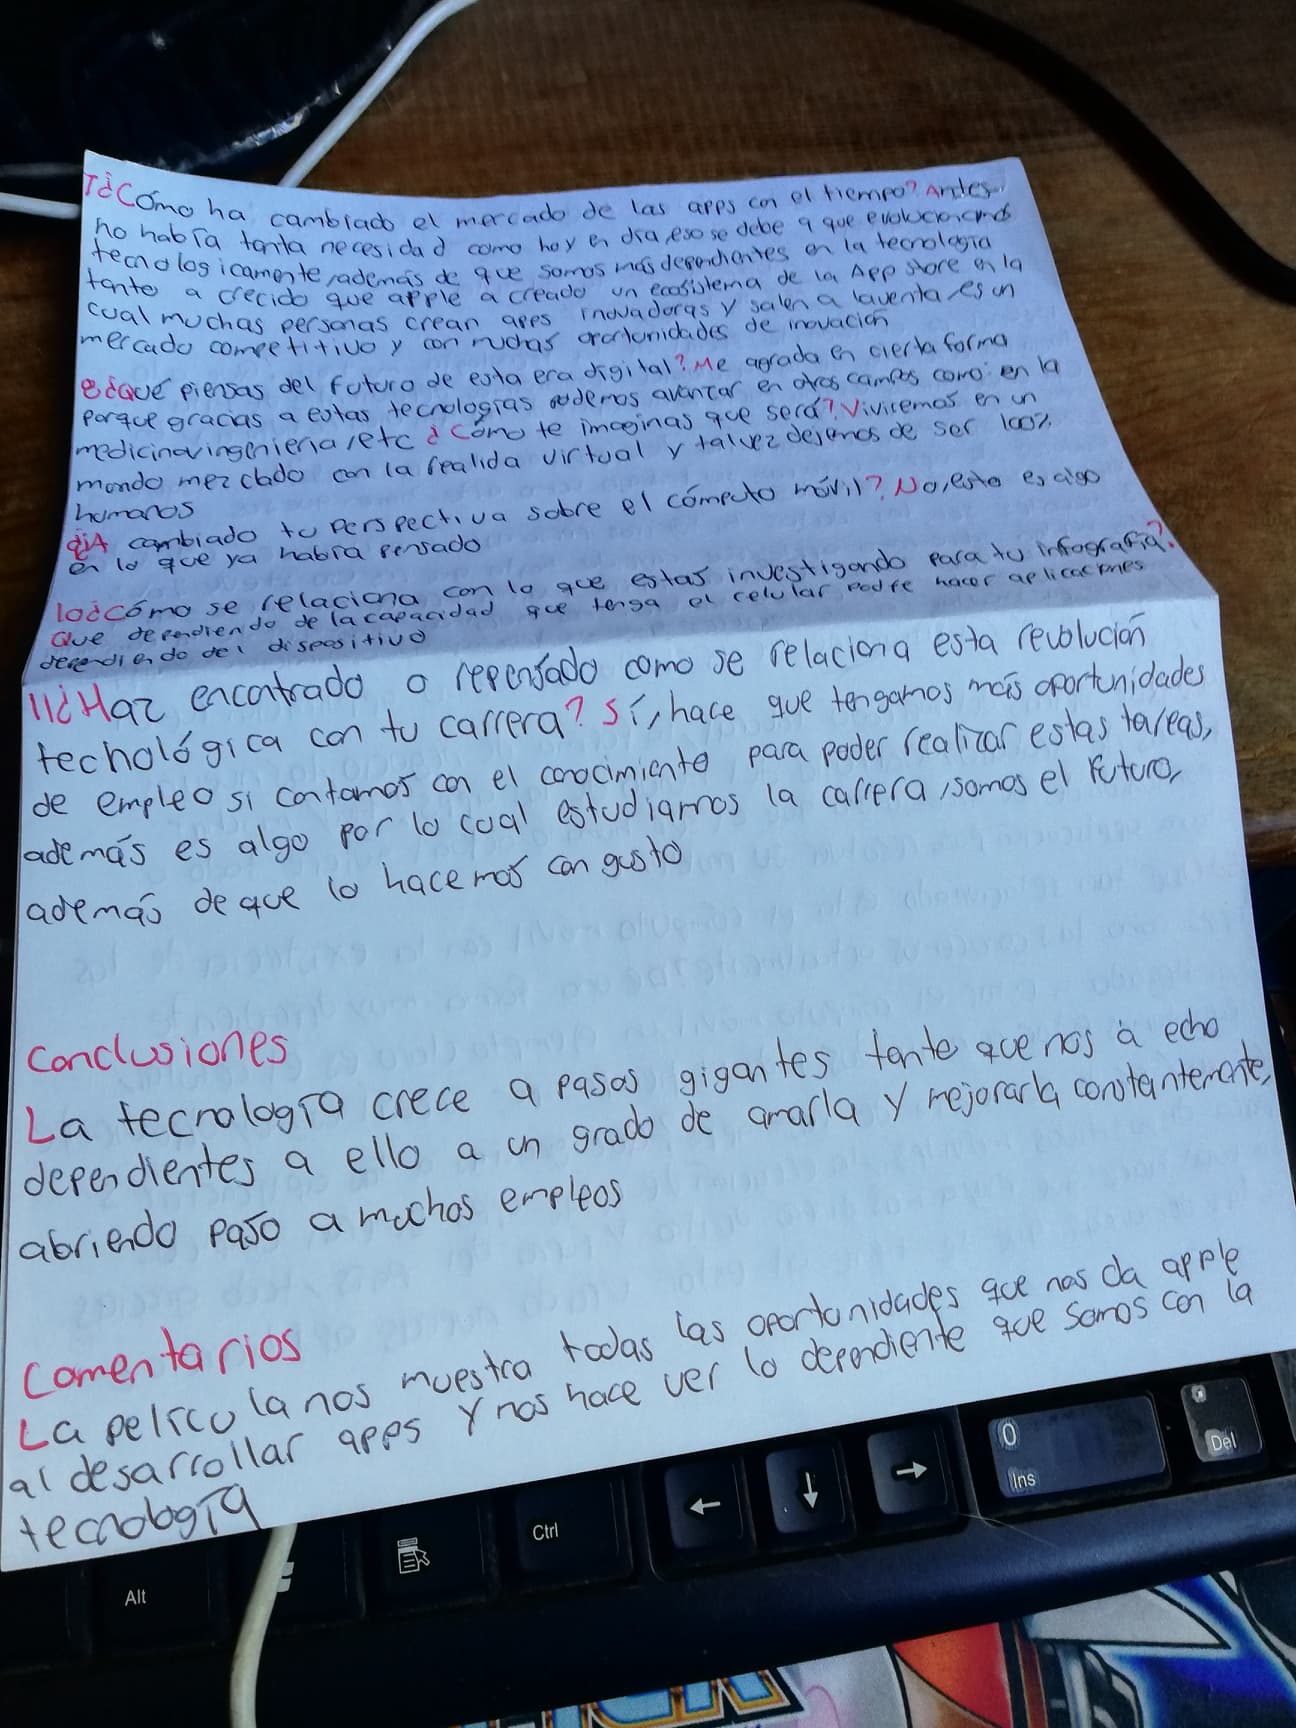 7¿Cómo ha cambiado el mercado de las apps con el tiempo? Antes
no había tanta necesidad como hoy en día, eso se debe a que evolucionamos
tecnologicamente, además de que somos más dependientes en la tecnología
tanto a crecido que apple a creado un ecosistema de la App store en la
cual muchas personas crean apps inovadoras y salen a la venta, es un
mercado competitivo y con muchas oportunidades de inovación
8¿Qué piensas del futuro de esta era digital? Me agrada en cierta forma
porque gracias a estas tecnologías podemos avanzar en otros campos como en la
medicina, ingenieria, etc ¿Cómo te imaginas que será? Viviremos en un
mundo mezclado con la realida virtual y talvez dejemos de ser 100%
humanos
9¿A cambiado tu perspectiva sobre el cómputo móvil? No, esto es algo
en lo que ya había pensado
10¿Cómo se relaciona con lo que estas investigando para tu infografía?
Que dependiendo de la capacidad que tenga el celular podre hacer aplicaciones
dependiendo del dispositivo
11¿Haz encontrado o repensado como se relaciona esta revolución
technológica con tu carrera? Sí, hace que tengamos más oportunidades
de empleo si contamos con el conocimiento para poder realizar estas tareas,
además es algo por lo cual estudiamos la carrera, somos el futuro,
además de que lo hacemos con gusto
Conclusiones
La tecnología crece a pasos gigantes tante que nos à echo
dependientes a ello a un grado de amarla y mejorarla constantemente,
abriendo paso a muchos empleos
Comentarios
La película nos muestra todas las oportunidades que nos da apple
al desarrollar apps y nos hace ver lo dependiente que somos con la
tecnología
0
Ins
Del
Ctrl
Alt